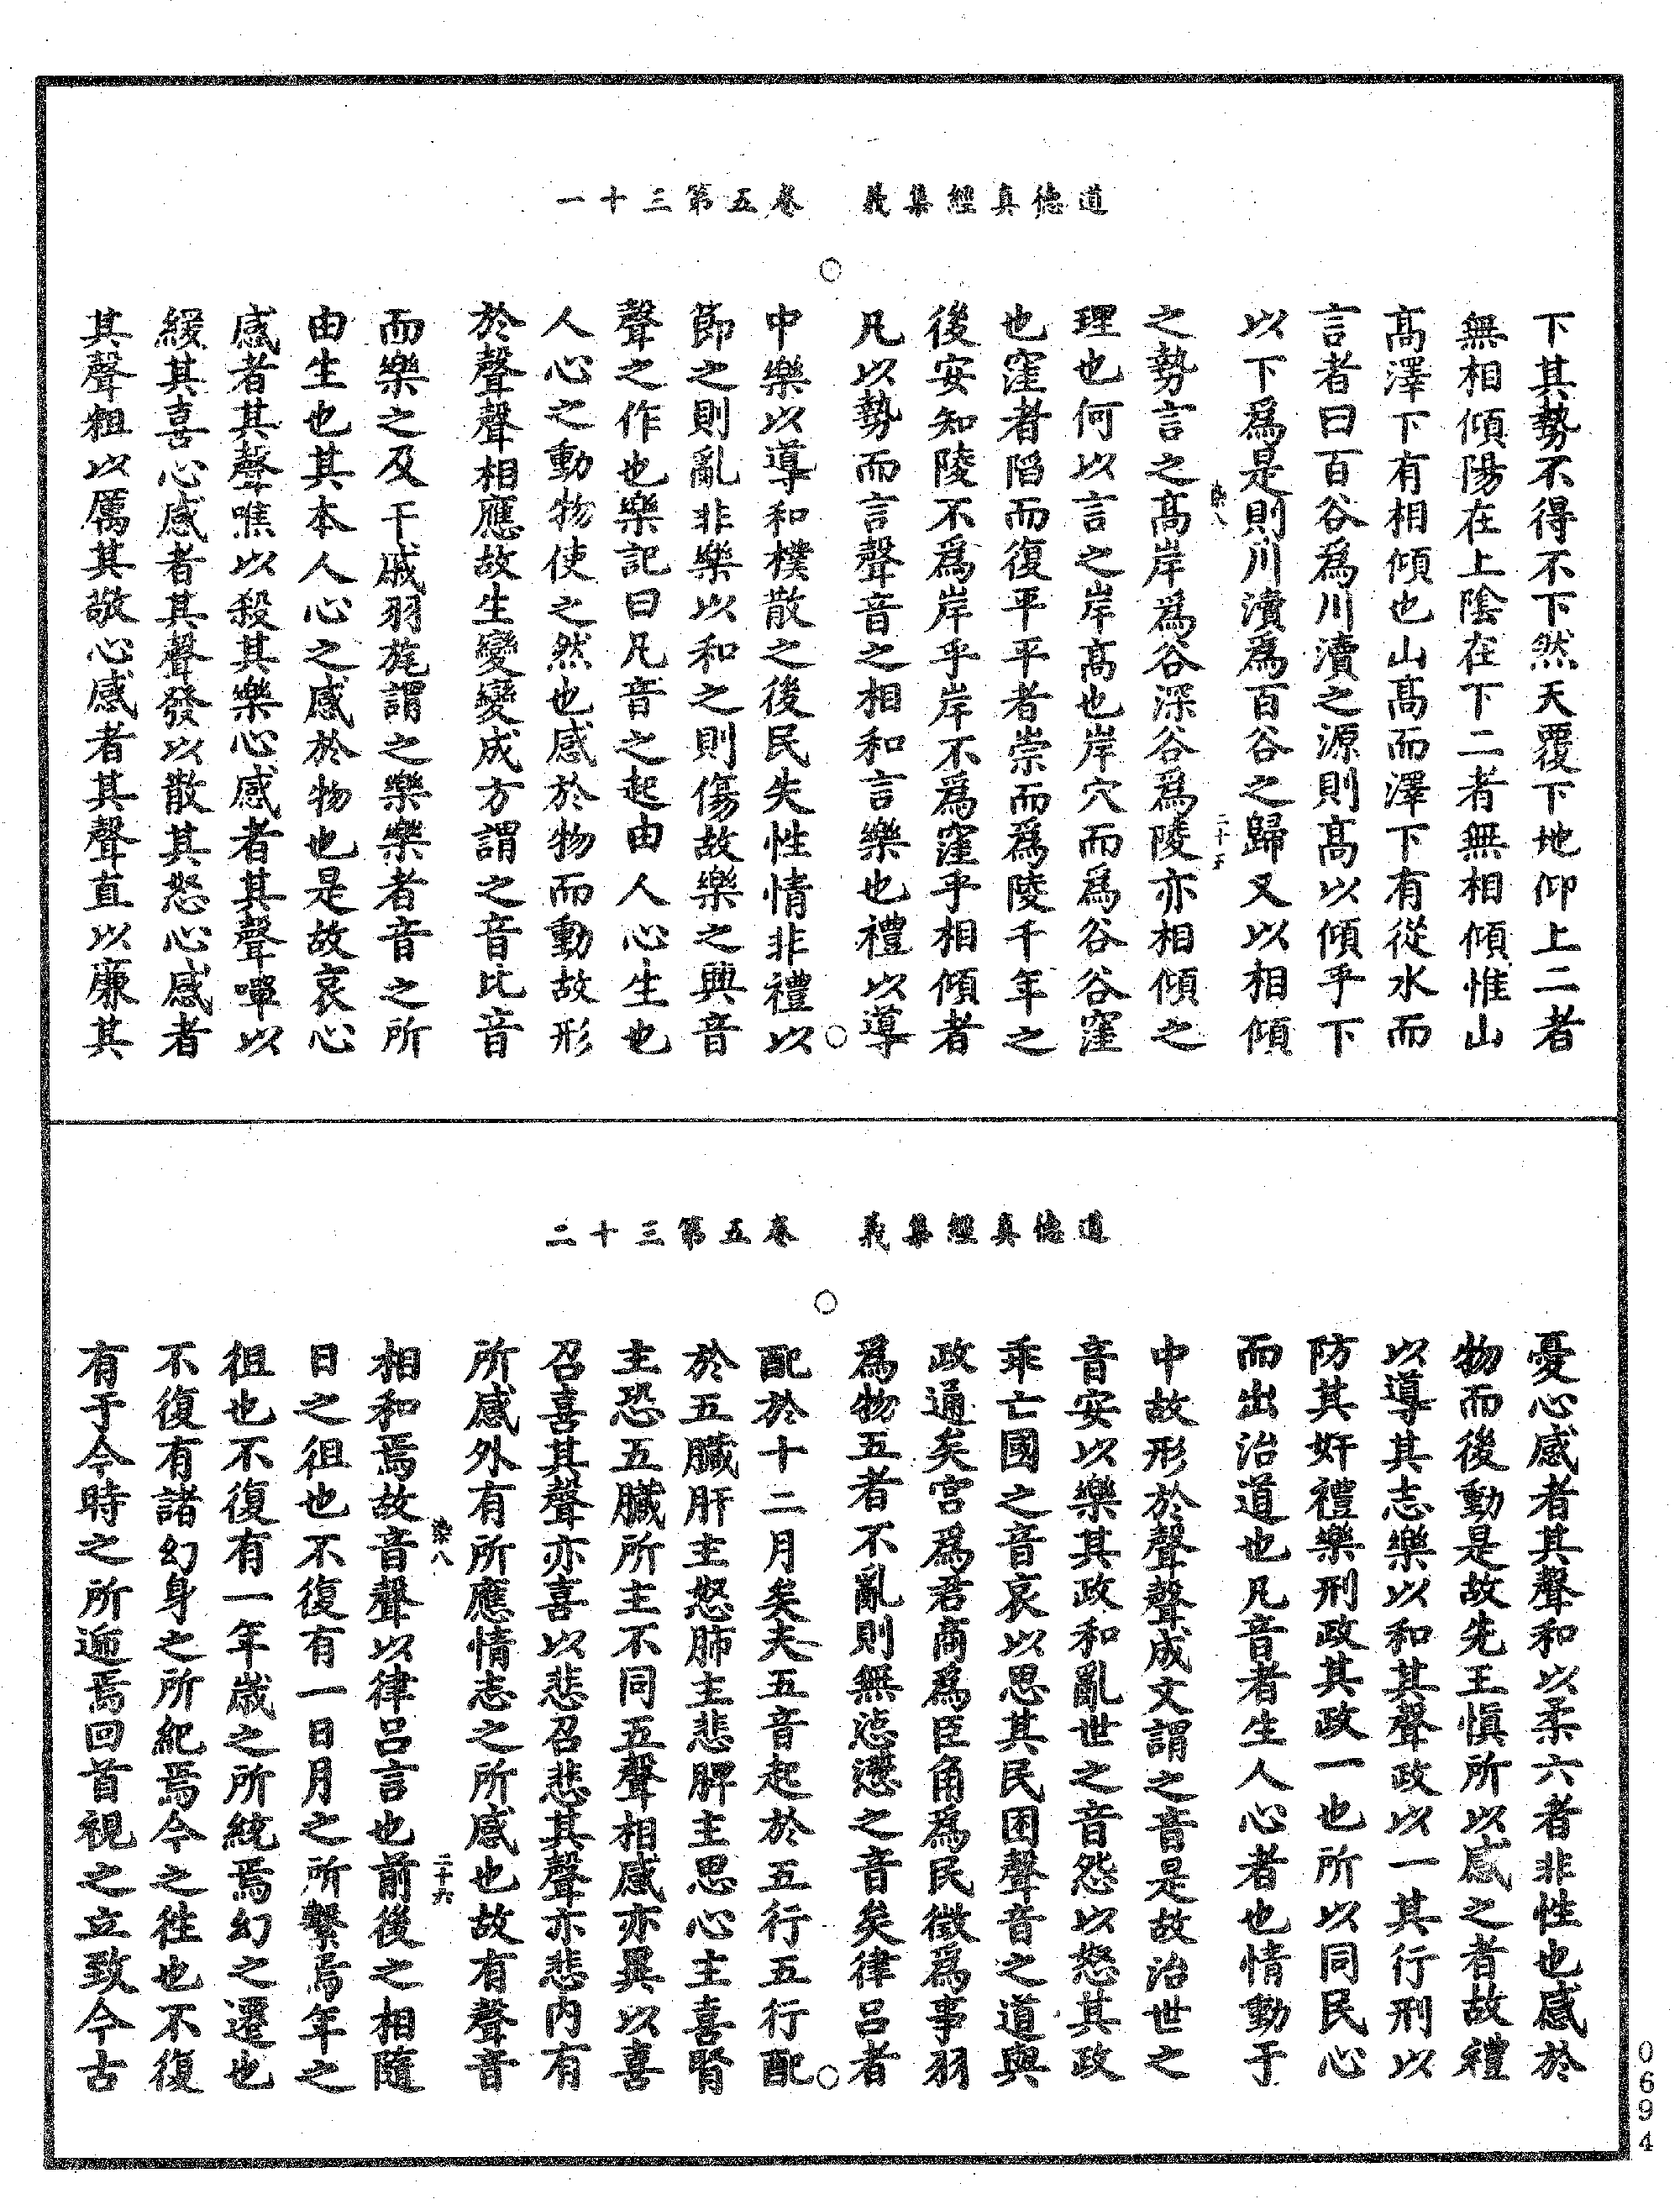 道德真經集義　卷五第三十一
下其勢不得不下然天覆下地仰上二者
無相傾陽在上陰在下二者無相傾惟山
高澤下有相傾也山高而澤下有從水而
言者曰百谷為川瀆之源則高以傾乎下
以下為是則川瀆為百谷之歸又以相傾
染八　二十五
之勢言之高岸為谷深谷為陵亦相傾之
理也何以言之岸高也岸穴而為谷谷窪
也窪者陷而復平平者崇而為陵千年之
後安知陵不為岸乎岸不為窪乎相傾者
凡以勢而言聲音之相和言樂也禮以導
中樂以導和樸散之後民失性情非禮以
節之則亂非樂以和之則傷故樂之興音
聲之作也樂記曰凡音之起由人心生也
人心之動物使之然也感於物而動故形
於聲聲相應故生變變成方謂之音比音
而樂之及干戚羽旄謂之樂樂者音之所
由生也其本人心之感於物也是故哀心
感者其聲噍以殺其樂心感者其聲嘽以
緩其喜心感者其聲發以散其怒心感者
其聲粗以厲其敬心感者其聲直以廉其
道德真經集義　卷五第三十二
憂心感者其聲和以柔六者非性也感於
物而後動是故先王慎所以感之者故禮
以導其志樂以和其聲政以一其行刑以
防其奸禮樂刑政其政一也所以同民心
而出治道也凡音者生人心者也情動于
中故形於聲聲成文謂之音是故治世之
音安以樂其政和亂世之音怨以怒其政
乖亡國之音哀以思其民困聲音之道與
政通矣宮為君商為臣角為民徵為事羽
為物五者不亂則無惉懘之音矣律呂者
配於十二月矣夫五音起於五行五行配
於五臟肝主怒肺主悲脾主思心主喜腎
主恐五臟所主不同五聲相感亦異以喜
召喜其聲亦喜以悲召悲其聲亦悲內有
所感外有所應情志之所感也故有聲音
染八　二十六
相和焉故音聲以律呂言也前後之相隨
日之徂也不復有一日月之所繫焉年之
徂也不復有一年歲之所統焉幻之遷也
不復有諸幻身之所紀焉今之往也不復
有于今時之所逝焉回首視之立致今古
0694